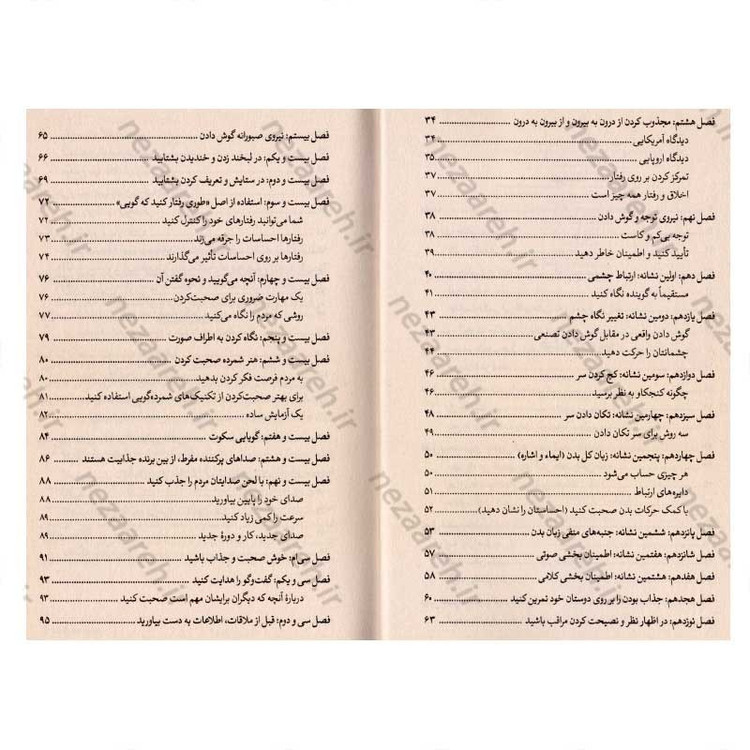 فصل هشتم: مجذوب کردن از درون به بیرون و از بیرون به درون ........ ۳۴
دیدگاه آمریکایی ........ ۳۴
دیدگاه اروپایی ........ ۳۵
تمرکز کردن بر روی رفتار ........ ۳۷
اخلاق و رفتار همه چیز است ........ ۳۷
فصل نهم: نیروی توجه و گوش دادن ........ ۳۸
توجه بی‌کم و کاست ........ ۳۸
تأیید کنید و اطمینان خاطر دهید ........ ۳۹
فصل دهم: اولین نشانه: ارتباط چشمی ........ ۴۰
مستقیماً به گوینده نگاه کنید ........ ۴۱
فصل یازدهم: دومین نشانه: تغییر نگاه چشم ........ ۴۳
گوش دادن واقعی در مقابل گوش دادن تصنعی ........ ۴۳
چشمانتان را حرکت دهید ........ ۴۴
فصل دوازدهم: سومین نشانه: کج کردن سر ........ ۴۶
چگونه کنجکاو به نظر برسید ........ ۴۶
فصل سیزدهم: چهارمین نشانه: تکان دادن سر ........ ۴۸
سه روش برای سر تکان دادن ........ ۴۹
فصل چهاردهم: پنجمین نشانه: زبان کل بدن (ایماء و اشاره) ........ ۵۰
هر چیزی حساب می‌شود ........ ۵۰
دایره‌های ارتباط ........ ۵۱
با کمک حرکات بدن صحبت کنید (احساستان را نشان دهید) ........ ۵۲
فصل پانزدهم: ششمین نشانه: جنبه‌های منفی زبان بدن ........ ۵۳
فصل شانزدهم: هفتمین نشانه: اطمینان بخشی صوتی ........ ۵۷
فصل هفدهم: هشتمین نشانه: اطمینان بخشی کلامی ........ ۵۸
فصل هجدهم: جذاب بودن را بر روی دوستان خود تمرین کنید ........ ۶۰
فصل نوزدهم: در اظهار نظر و نصیحت کردن مراقب باشید ........ ۶۳
فصل بیستم: نیروی صبورانه گوش دادن ........ ۶۵
فصل بیست و یکم: در لبخند زدن و خندیدن بشتابید ........ ۶۶
فصل بیست و دوم: در ستایش و تعریف کردن بشتابید ........ ۶۹
فصل بیست و سوم: استفاده از اصل «طوری رفتار کنید که گویی» ........ ۷۲
شما می‌توانید رفتارهای خود را کنترل کنید ........ ۷۲
رفتارها احساسات را جرقه می‌زند ........ ۷۳
رفتارها بر روی احساسات تأثیر می‌گذارند ........ ۷۴
فصل بیست و چهارم: آنچه می‌گویید و نحوه گفتن آن ........ ۷۶
یک مهارت ضروری برای صحبت‌کردن ........ ۷۶
روشی که مردم را نگاه می‌کنید ........ ۷۷
فصل بیست و پنجم: نگاه کردن به اطراف صورت ........ ۷۹
فصل بیست و ششم: هنر شمرده صحبت کردن ........ ۸۰
به مردم فرصت فکر کردن بدهید ........ ۸۰
برای بهتر صحبت‌کردن از تکنیک‌های شمرده‌گویی استفاده کنید ........ ۸۱
یک آزمایش ساده ........ ۸۲
فصل بیست و هفتم: گویایی سکوت ........ ۸۴
فصل بیست و هشتم: صداهای پرکننده مفرط، از بین برنده جذابیت هستند ........ ۸۶
فصل بیست و نهم: با لحن صدایتان مردم را جذب کنید ........ ۸۸
صدای خود را پایین بیاورید ........ ۸۸
سرعت را کمی زیاد کنید ........ ۸۹
صدای جدید، کار و دورهٔ جدید ........ ۸۹
فصل سی‌ام: خوش صحبت و جذاب باشید ........ ۹۱
فصل سی و یکم: گفت‌وگو را هدایت کنید ........ ۹۳
دربارهٔ آنچه که دیگران برایشان مهم است صحبت کنید ........ ۹۳
فصل سی و دوم: قبل از ملاقات، اطلاعات به دست بیاورید ........ ۹۵
nezaareh.ir